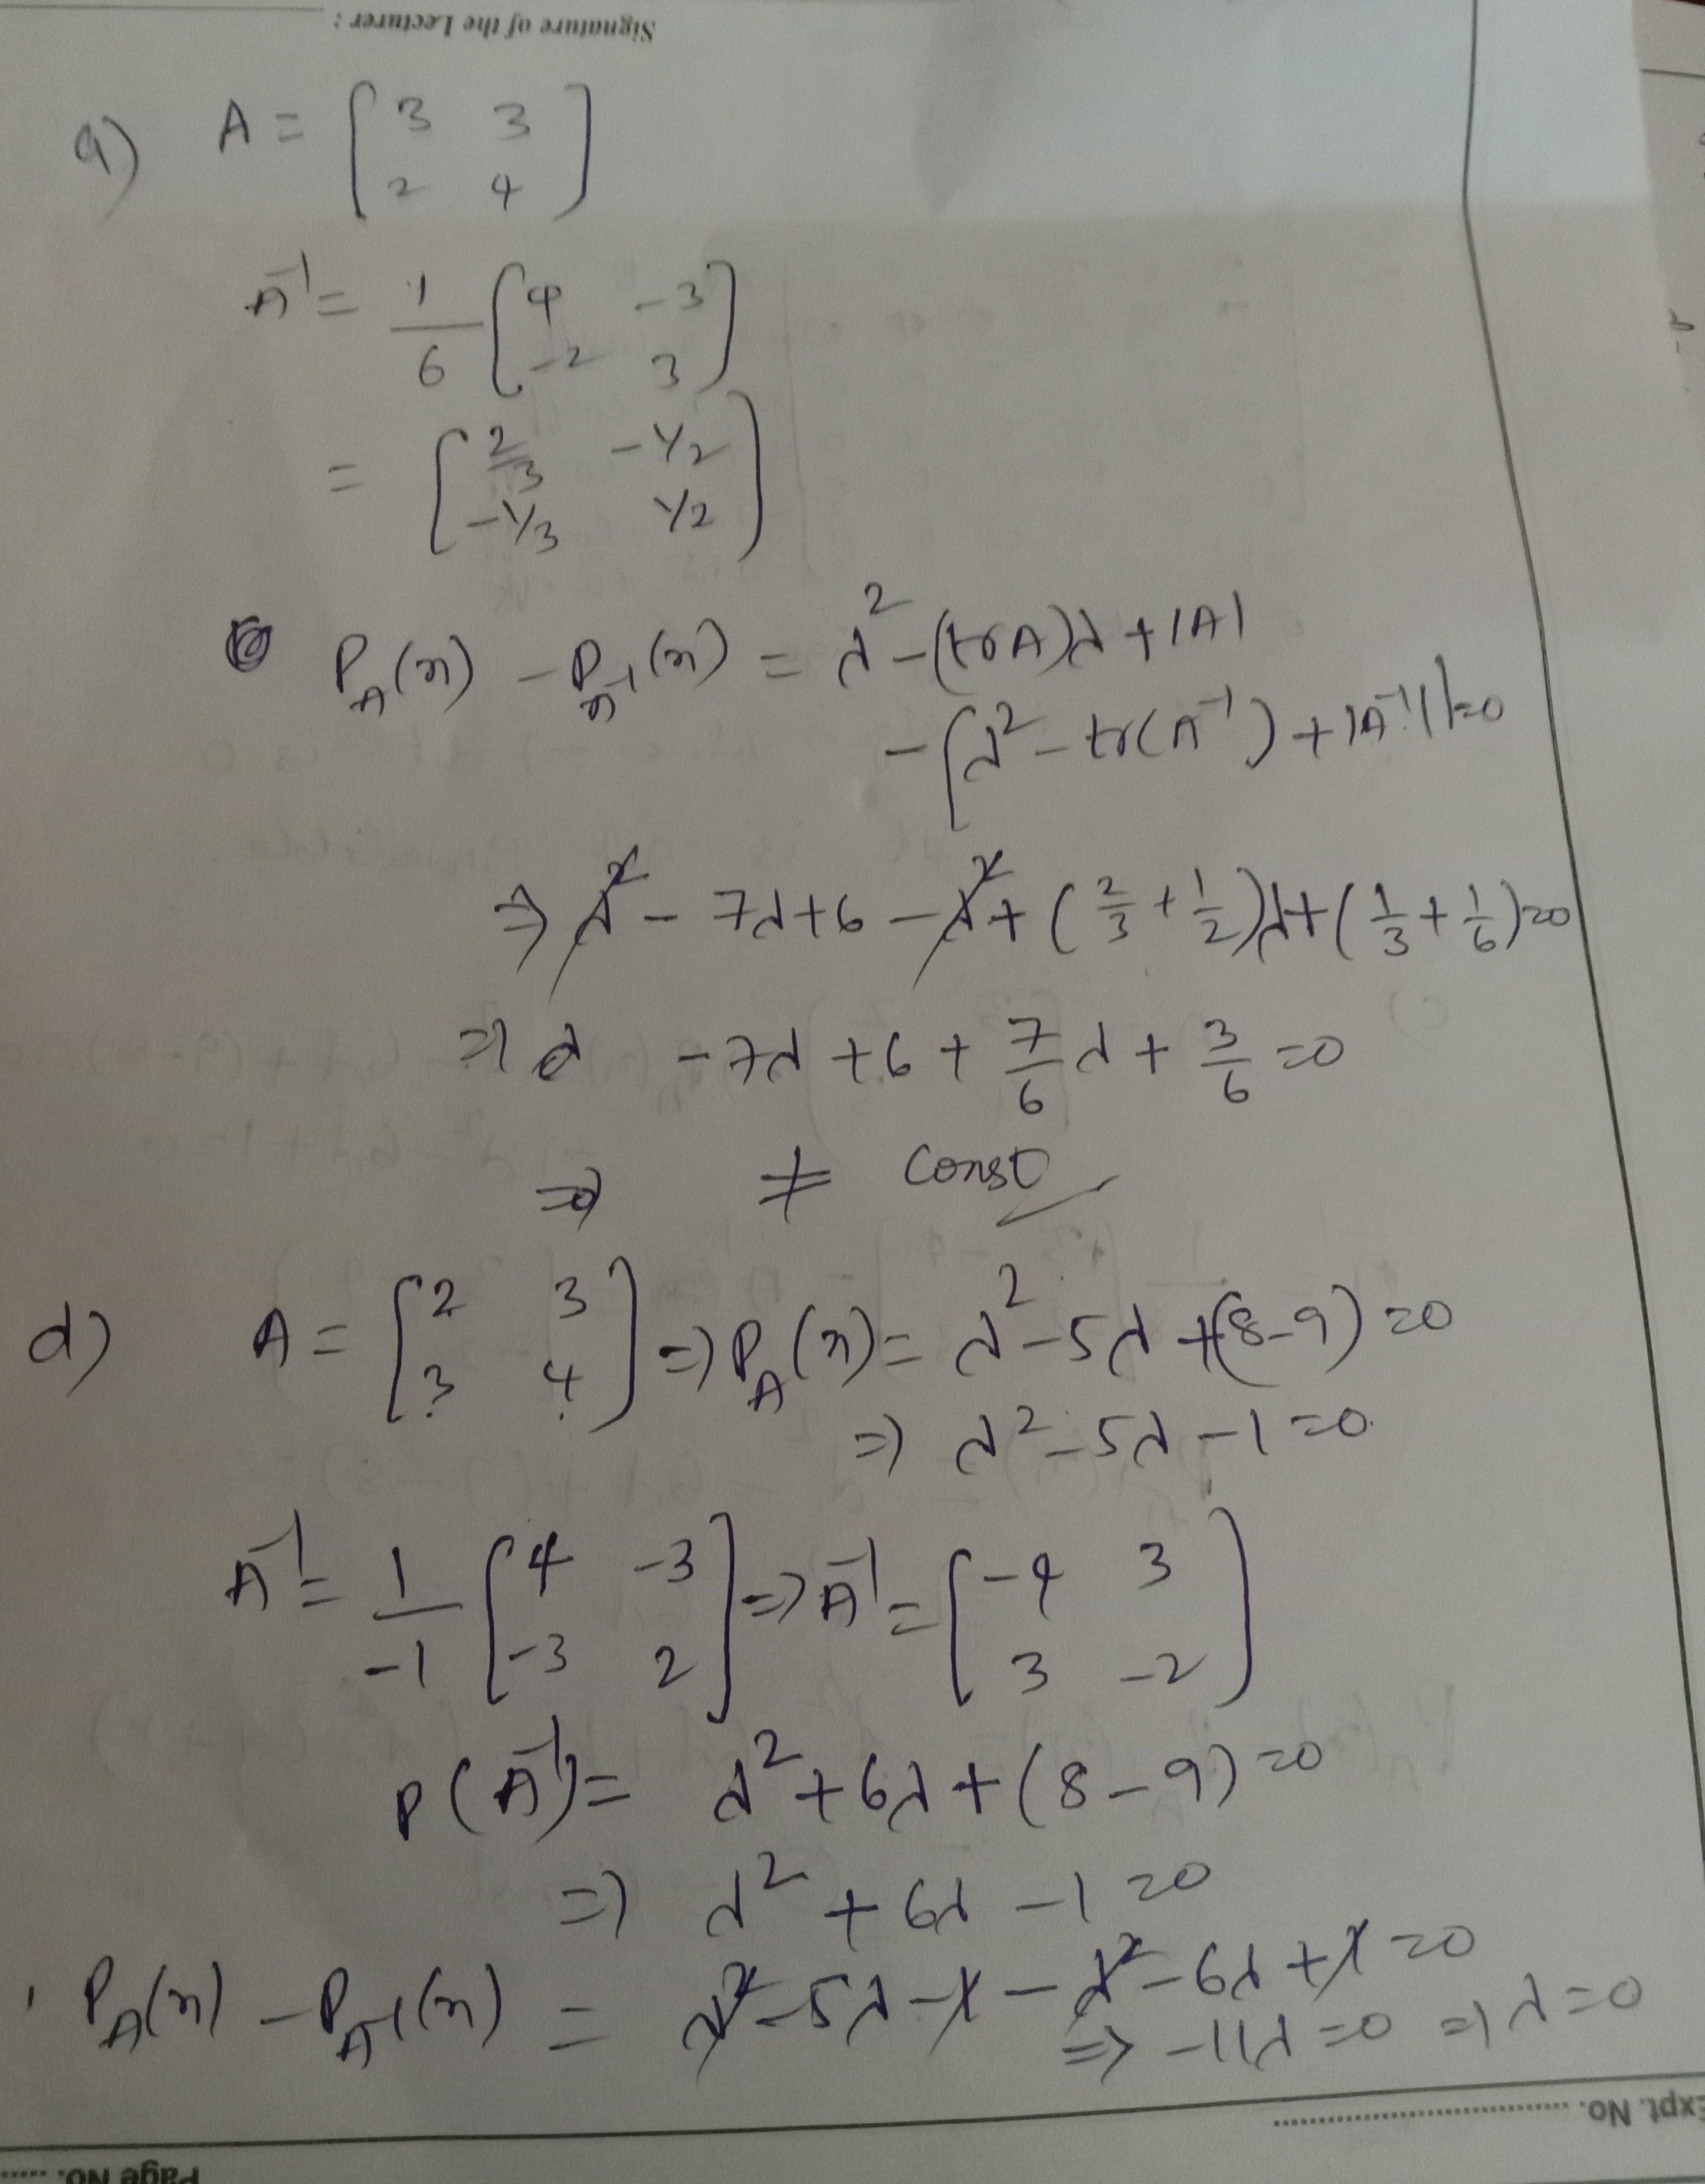 Signature of the Lecturer :
a) A = [ 3 3
2 4 ]
A⁻¹ = 1/6 [ 4 -3
-2 3 ]
= [ 2/3 -1/2
-1/3 1/2 ]
P_A(x) - P_A⁻¹(x) = λ² - (trA)λ + |A|
- [λ² - tr(A⁻¹) + |A⁻¹|] = 0
⇒ λ² - 7λ + 6 - λ² + (2/3 + 1/2)λ + (1/3 + 1/6) = 0
⇒ λ - 7λ + 6 + 7/6 λ + 3/6 = 0
⇒ ≠ Const
d) A = [ 2 3
3 4 ] ⇒ P_A(x) = λ² - 5λ + (8-9) = 0
⇒ λ² - 5λ - 1 = 0
A⁻¹ = 1/-1 [ 4 -3
-3 2 ] ⇒ A⁻¹ = [ -4 3
3 -2 ]
P(A⁻¹) = λ² + 6λ + (8-9) = 0
⇒ λ² + 6λ - 1 = 0
P_A(x) - P_A⁻¹(x) = λ² - 5λ - 1 - λ² - 6λ + 1 = 0
⇒ -11λ = 0 ⇒ λ = 0
Expt. No.
Page No.